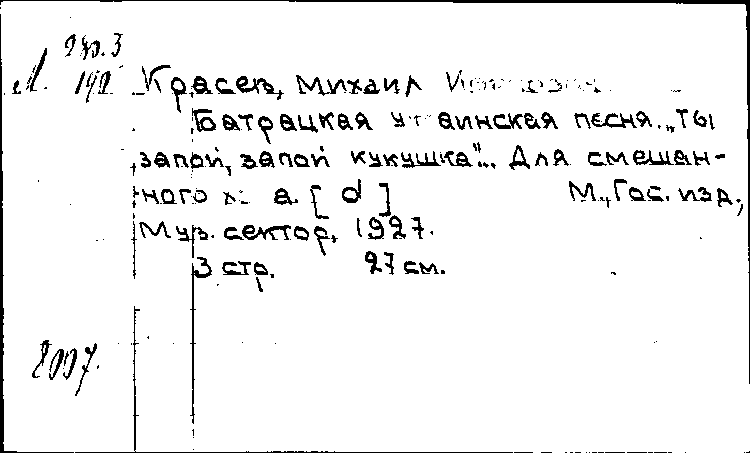 2др.3
М. 192 Красев, Михаил
Батрацкая украинская песня. „Ты
запой, запой кукушка"... Для смешан-
ного х а. [ d ] М., Гос. изд.,
Муз. сектор, 1927.
3 стр. 27 см.
8007.